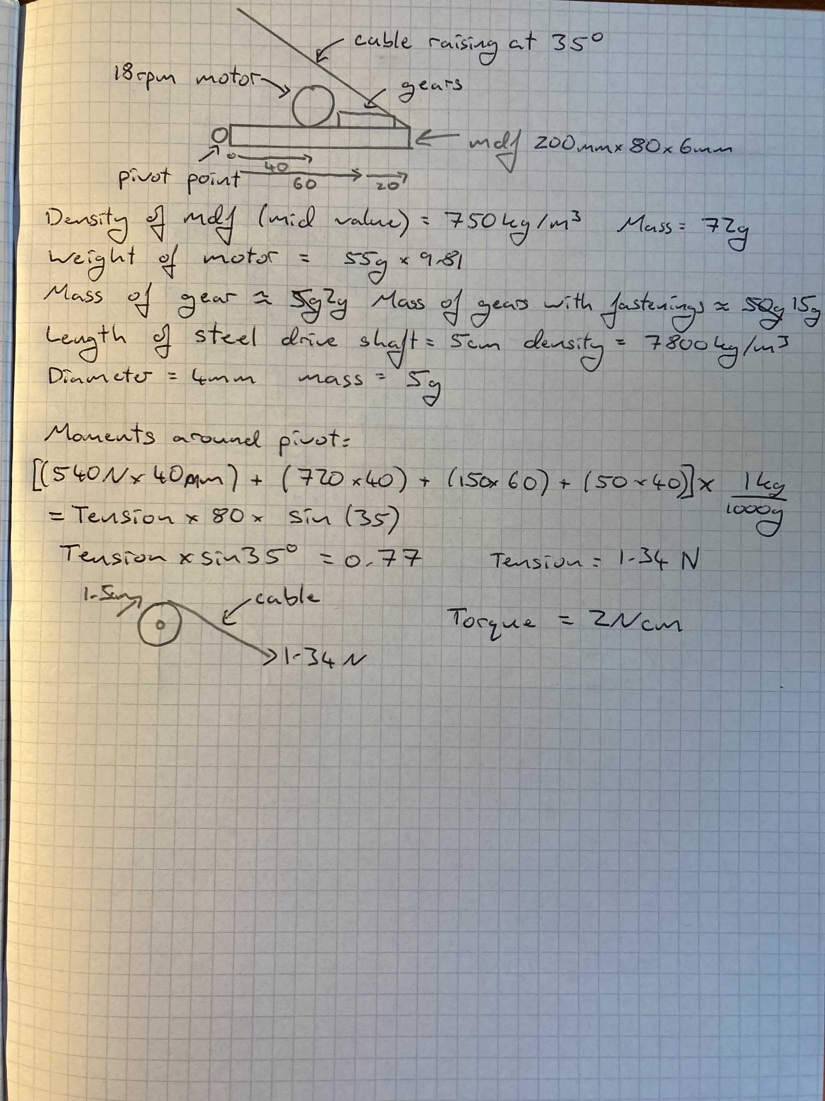 cable raising at 35°
18rpm motor
gears
mdf 200mm x 80 x 6mm
40
pivot point
60
20
Density of mdf (mid value) = 750kg/m³ Mass = 72g
Weight of motor = 55g x 9.81
Mass of gear ≈ 2g Mass of gears with fastenings ≈ 15g
Length of steel drive shaft = 5cm density = 7800kg/m³
Diameter = 4mm mass = 5g
Moments around pivot:
[(540N x 40mm) + (720 x 40) + (150 x 60) + (50 x 40)] x 1kg/1000g
= Tension x 80 x sin (35)
Tension x sin35° = 0.77 Tension = 1.34 N
1.5cm
cable
Torque = 2Ncm
1.34 N